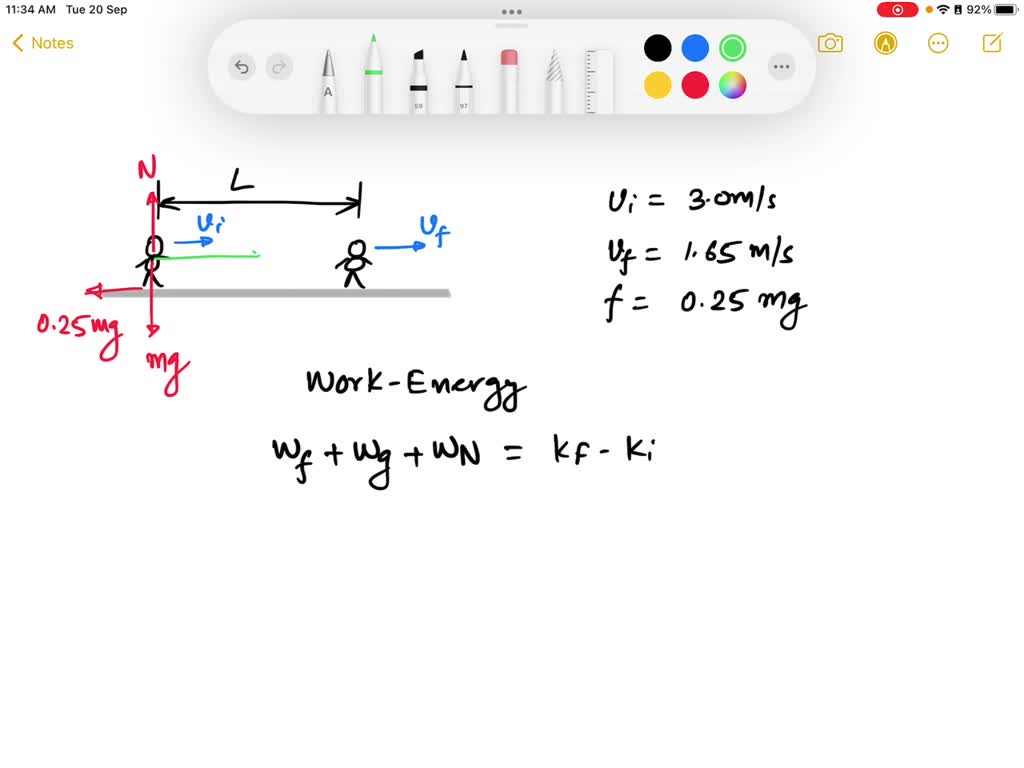 11:34 AM Tue 20 Sep
92%
Notes
A
59
97
N
L
vi
vf
0.25mg
mg
vi = 3.0m/s
vf = 1.65 m/s
f = 0.25 mg
Work-Energy
Wf + Wg + WN = kf - ki